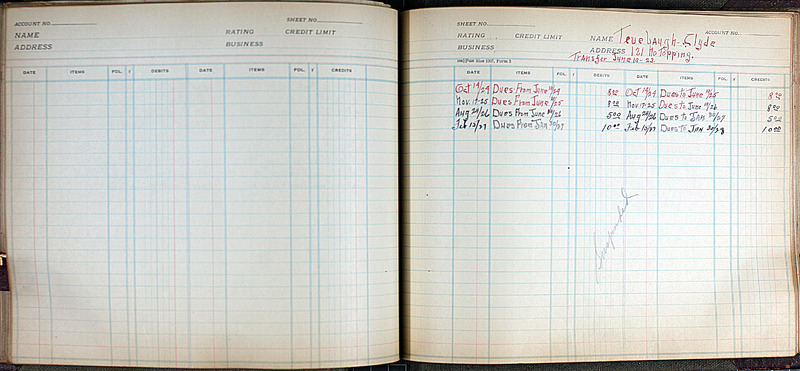 ACCOUNT NO.
SHEET NO.
NAME
RATING CREDIT LIMIT
ADDRESS
BUSINESS
DATE ITEMS FOL. DEBITS DATE ITEMS FOL. CREDITS
SHEET NO.
ACCOUNT NO.
RATING CREDIT LIMIT NAME Clyde
BUSINESS ADDRESS 121 No Topping.
Transfer June 10-23
DATE ITEMS FOL. DEBITS DATE ITEMS FOL. CREDITS
Oct 14/24 Dues From June 8 00 Oct 14/24 Dues to June 8 00
Nov. 17-25 Dues From June 8 00 Nov 17-25 Dues to June 8 00
Aug 24/26 Dues From June 5 00 Aug 24/26 Dues to Jan 5 00
Feb 12/27 Dues From Jan 10 00 Feb 12/27 Dues To Jan 10 00
Suspended